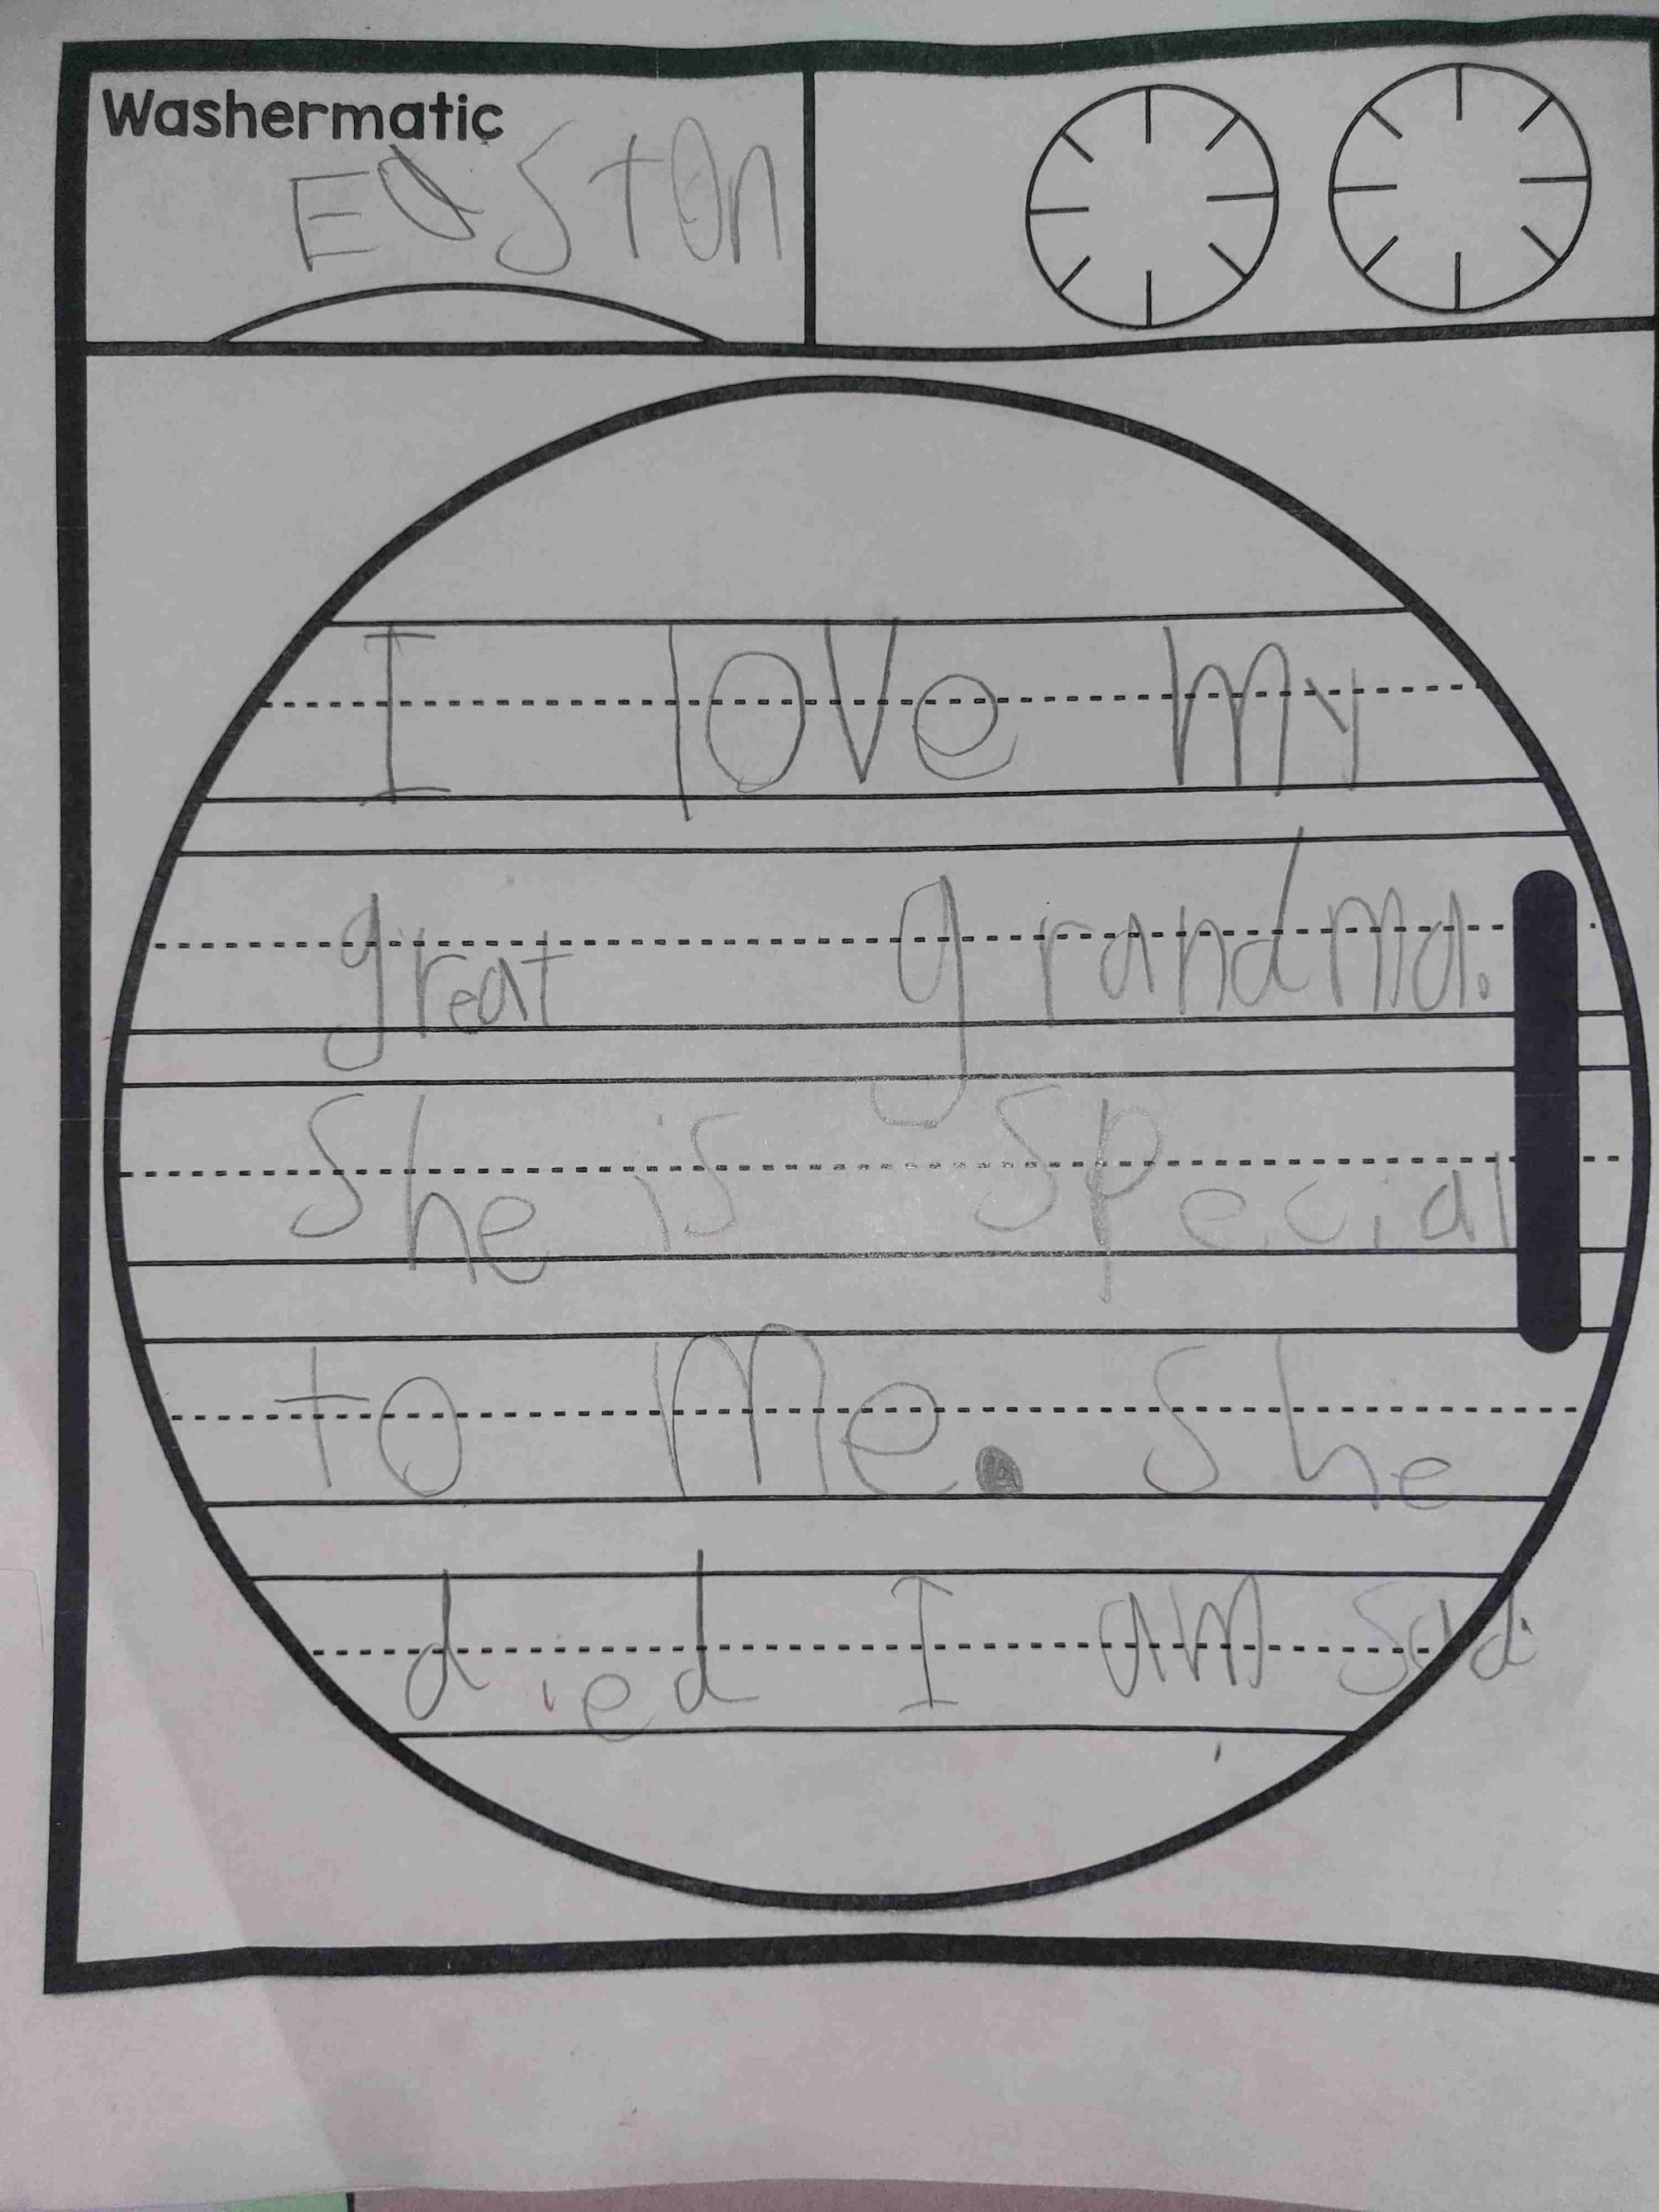 Washermatic
Easton
I love my
great grandma.
She is special
to me. She
died I am sad.